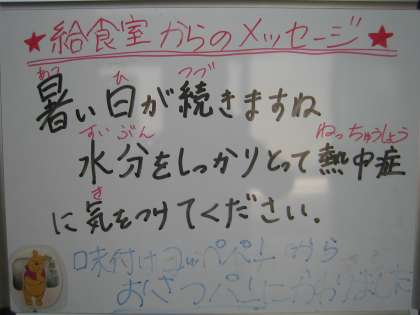 ★給食室からのメッセージ★
あつ ひ つづ
暑い日が続きますね
すいぶん ねっちゅうしょう
水分をしっかりとって熱中症
き
に気をつけてください.
味付けコッペパン から
おさつパンにかわりました